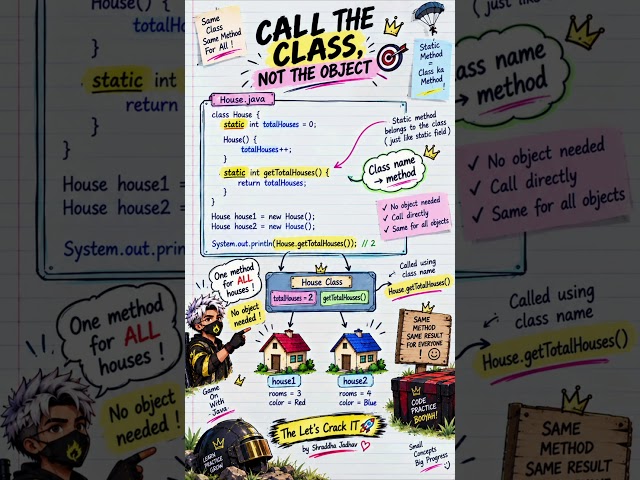 Same
Class
Same Method
For All !
CALL THE
CLASS,
NOT THE OBJECT
Static
Method
=
Class ka
Method !
House.java
class House {
static int totalHouses = 0;
House() {
totalHouses++;
}
static int getTotalHouses() {
return totalHouses;
}
}
House house1 = new House();
House house2 = new House();
System.out.println(House.getTotalHouses()); // 2
Static method
belongs to the class
(just like static field)
Class name
→ method
✓ No object needed
✓ Call directly
✓ Same for all objects
One method
for ALL
houses !
No object
needed !
House Class
totalHouses = 2
getTotalHouses()
Called using
class name
House.getTotalHouses()
SAME
METHOD
SAME RESULT
FOR EVERYONE
!
house1
rooms = 3
color = Red
house2
rooms = 4
color = Blue
Game
On
With
Java
CODE
PRACTICE
BOOYAH!
LEARN
PRACTICE
GROW
The Let's Crack IT
by Shraddha Jadhav
Small
Concepts
Big Progress
House() {
totalHo
}
static int
return
}
}
House house1 =
House house2 =
System.out.prin
(just like static field)
Class name
→ method
✓ No object needed
✓ Call directly
✓ Same for all objects
One method
for ALL
houses !
No object
needed !
Called using
class name
House.getTotalHouses()
SAME
METHOD
SAME RESULT